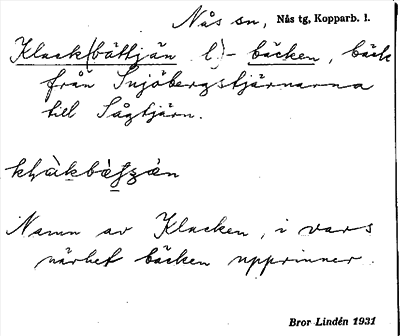 Nås sn, Nås tg, Kopparb. l.
Klack(bättjän l.)- bäcken, bäck
från Snjöbergstjärnarna
till Sågtjärn.
Namn av Klacken, i vars
närhet bäcken upprinner.
Bror Lindén 1931